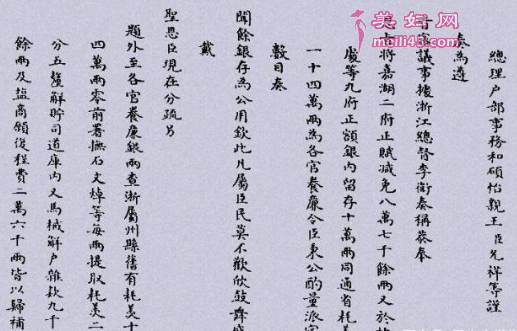 總理戶部事務和碩怡親王臣允祥等謹
奏為遵
旨密議事據浙江總督李衛奏稱恭奉
將嘉湖二府正賦減免八萬七千餘兩又於
處等九府正額銀內留存十萬兩同通省耗
一十四萬兩為各官養廉令臣秉公酌量派定
數目奏
聞餘銀存為公用欽此凡屬臣民莫不歡欣鼓舞感
戴
聖恩臣現在分疏另
題外至各官養廉銀兩查浙屬州縣舊有耗羨十
四萬兩零前署撫石文焯等每兩提取耗羨二
分五釐解貯司道庫內又馬械解戶雜款九千
餘兩及鹽商願復程費二萬六千兩皆以歸補
美妇网
meili43.com